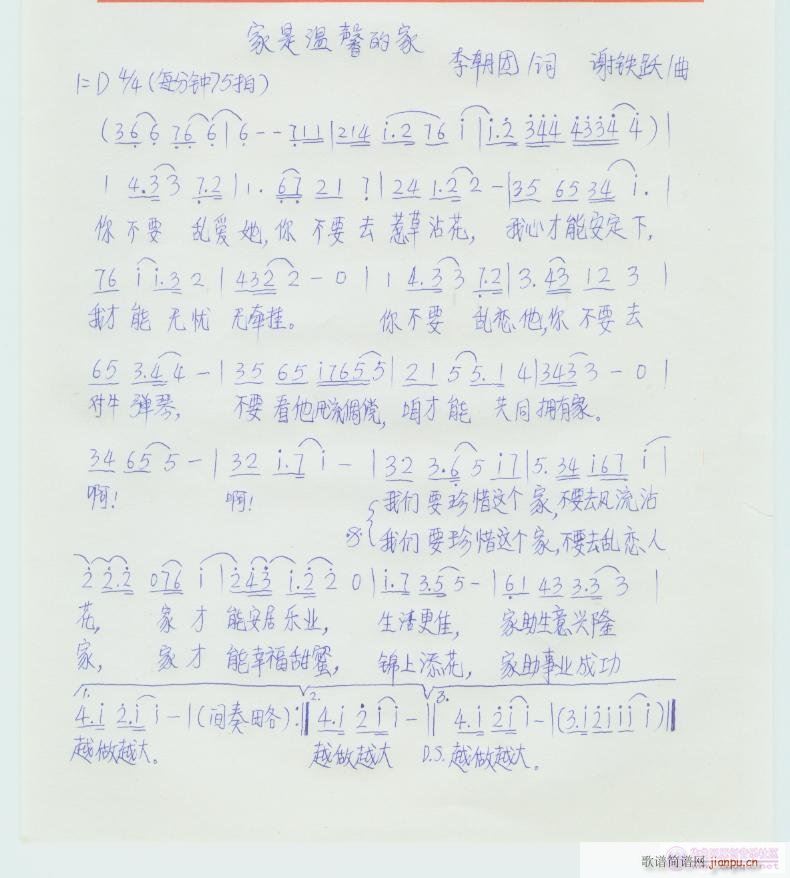 家是温馨的家
李朝团/词 谢铁跃/曲
1=D 4/4(每分钟75拍)
(366 766|6--711|214 1.2 76 1|1.2 344 43344)|
1 4.33 7.2|1. 67 21 7|24 1.22-|35 65 34 1.|
你不要 乱爱她,你 不要去惹草沾花, 我心才能安定下,
76 1 1.3 2|4322-0|1 4.33 7.2|3. 43 12 3|
我才能 无忧 无牵挂。 你不要 乱恋他,你不要去
65 3.44-|35 65 17655|21 55.1 4|3433-0|
对牛 弹琴, 不要看他 咱才能 共同拥有家。
34 655-|32 1.71-|32 3.65 17|5. 34 167 1|
啊! 啊! 我们要珍惜这个家,不要去风流沾
我们要珍惜这个家,不要去乱恋人
2 2.2 076 1|243 1.22 0|1.7 3.55-|61 43 3.3 3|
花, 家才 能安居乐业, 生活更佳, 家助生意兴隆
家, 家才 能幸福甜蜜, 锦上添花, 家助事业成功
1. 2. 3.
4.1 2.11-|(间奏略):‖4.1 211-‖4.1 211-|(3.121111)‖
越做越大。 越做越大 D.S. 越做越大。
歌谱简谱网 jianpu.cn